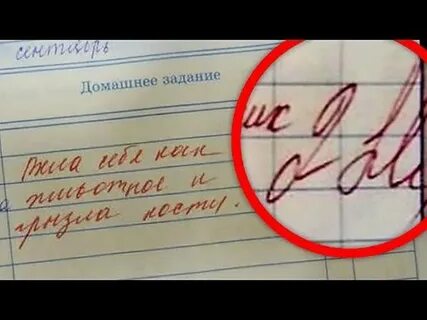 сентябрь
Домашнее задание
Вела себя как
животное и
грызла кости.